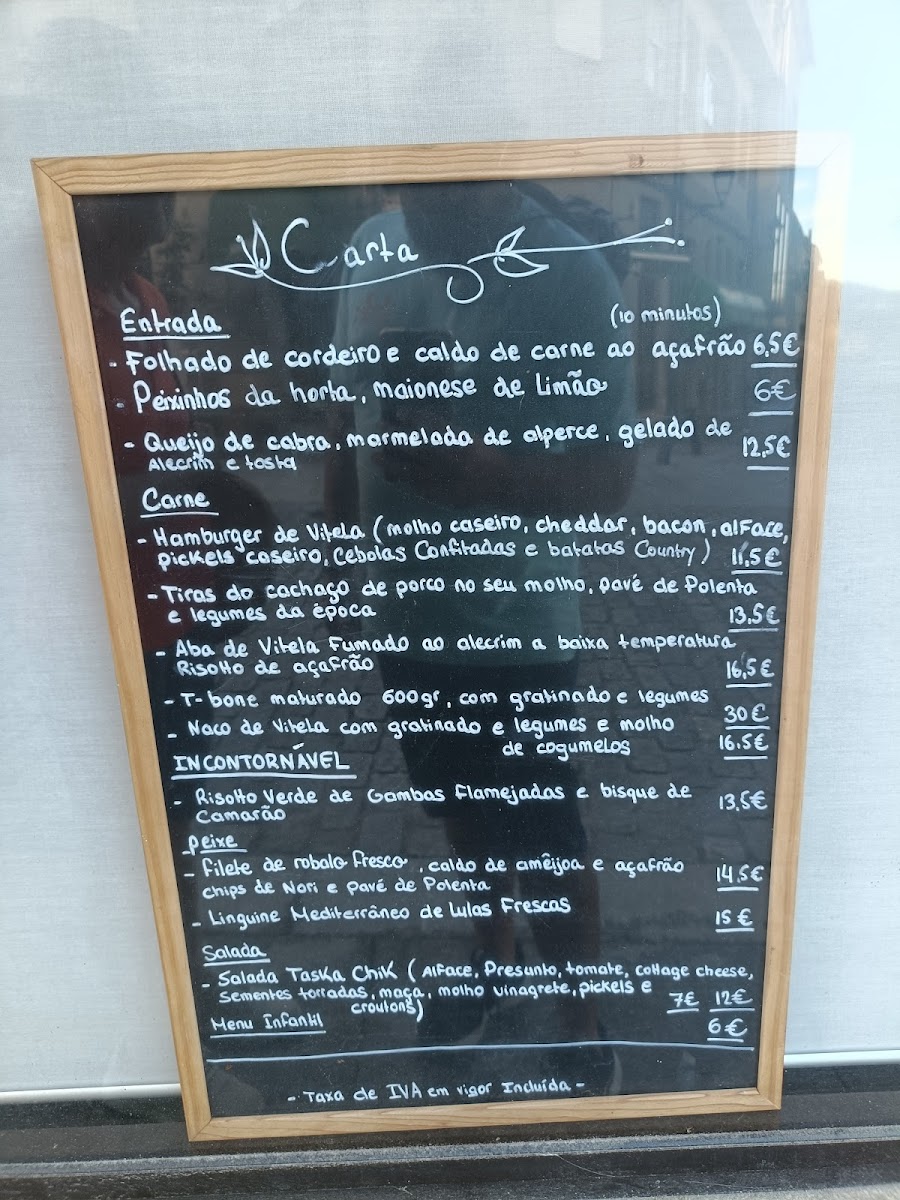 Carta
Entrada (10 minutos)
- Folhado de cordeiro e caldo de carne ao açafrão 6,5€
- Peixinhos da horta, maionese de limão 6€
- Queijo de cabra, marmelada de alperce, gelado de 12,5€
Alecrim e tosta
Carne
- Hamburger de Vitela (molho caseiro, cheddar, bacon, alface,
pickels caseiro, cebolas Confitadas e batatas Country) 11,5€
- Tiras do cachaço de porco no seu molho, pavé de Polenta
e legumes da época 13,5€
- Aba de Vitela Fumado ao alecrim a baixa temperatura
Risotto de açafrão 16,5€
- T-bone maturado 600gr, com gratinado e legumes 30€
- Naco de Vitela com gratinado e legumes e molho
de cogumelos 16.5€
INCONTORNÁVEL
- Risotto Verde de Gambas Flamejadas e bisque de 13,5€
Camarão
Peixe
- Filete de robalo fresco, caldo de amêijoa e açafrão 14,5€
chips de Nori e pavé de Polenta
- Linguine Mediterrâneo de Lulas Frescas 15€
Salada
- Salada Taska Chik (Alface, Presunto, tomate, cottage cheese,
Sementes torradas, maça, molho vinagrete, pickels e 7€ 12€
croutons)
Menu Infantil 6€
- Taxa de IVA em vigor Incluída -